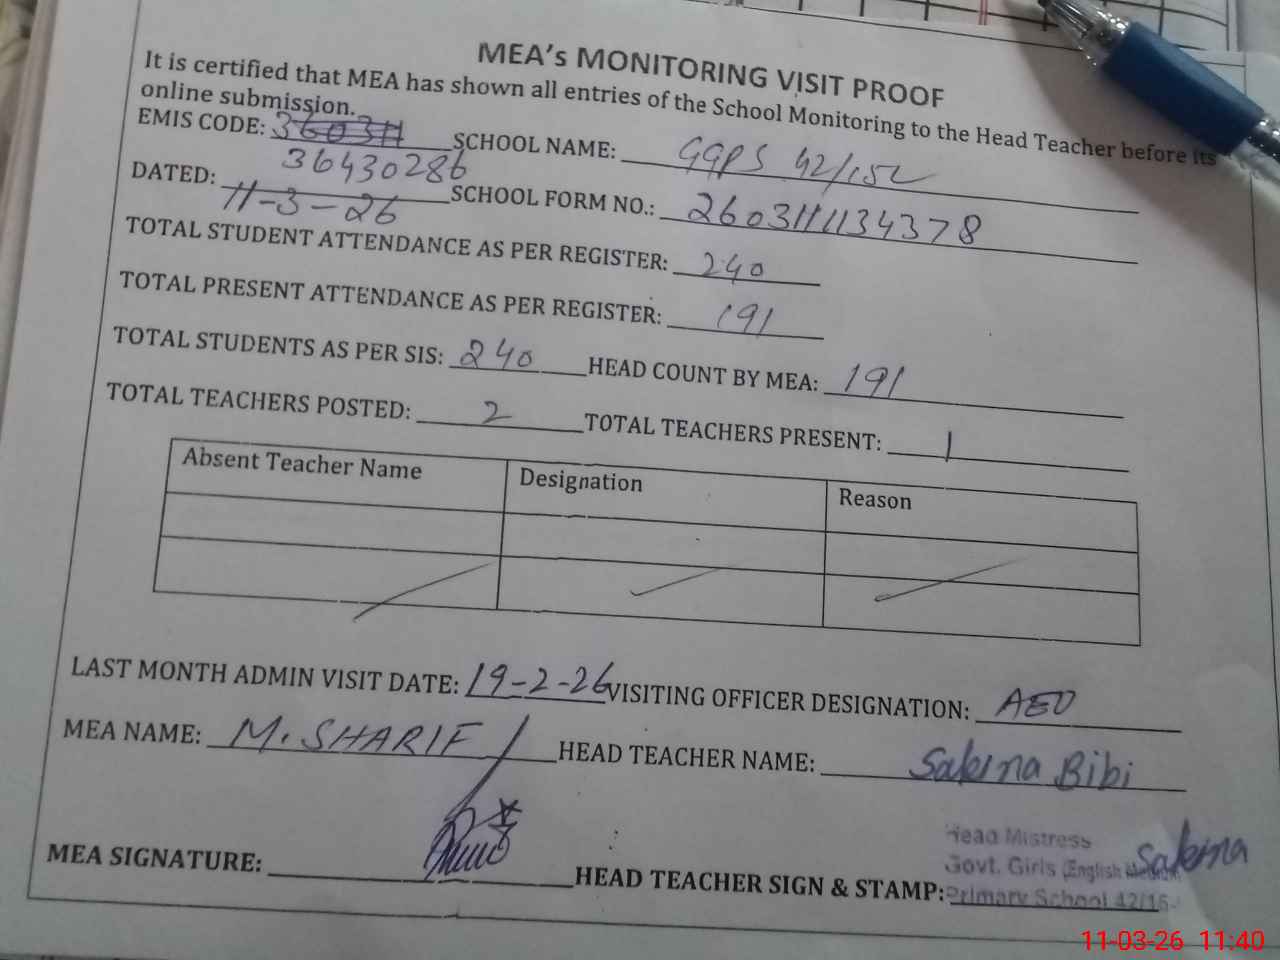 MEA's MONITORING VISIT PROOF
It is certified that MEA has shown all entries of the School Monitoring to the Head Teacher before its
online submission.
EMIS CODE: 360311 SCHOOL NAME: GGPS 42/15L
36430286
DATED: 11-3-26 SCHOOL FORM NO.: 260311134378
TOTAL STUDENT ATTENDANCE AS PER REGISTER: 240
TOTAL PRESENT ATTENDANCE AS PER REGISTER: 191
TOTAL STUDENTS AS PER SIS: 240 HEAD COUNT BY MEA: 191
TOTAL TEACHERS POSTED: 2 TOTAL TEACHERS PRESENT: 1
Absent Teacher Name Designation Reason
LAST MONTH ADMIN VISIT DATE: 19-2-26 VISITING OFFICER DESIGNATION: AEO
MEA NAME: M. SHARIF HEAD TEACHER NAME: Sakina Bibi
MEA SIGNATURE: HEAD TEACHER SIGN & STAMP: Sakina
Head Mistress
Govt. Girls (English Medium)
Primary School 42/15-
11-03-26 11:40